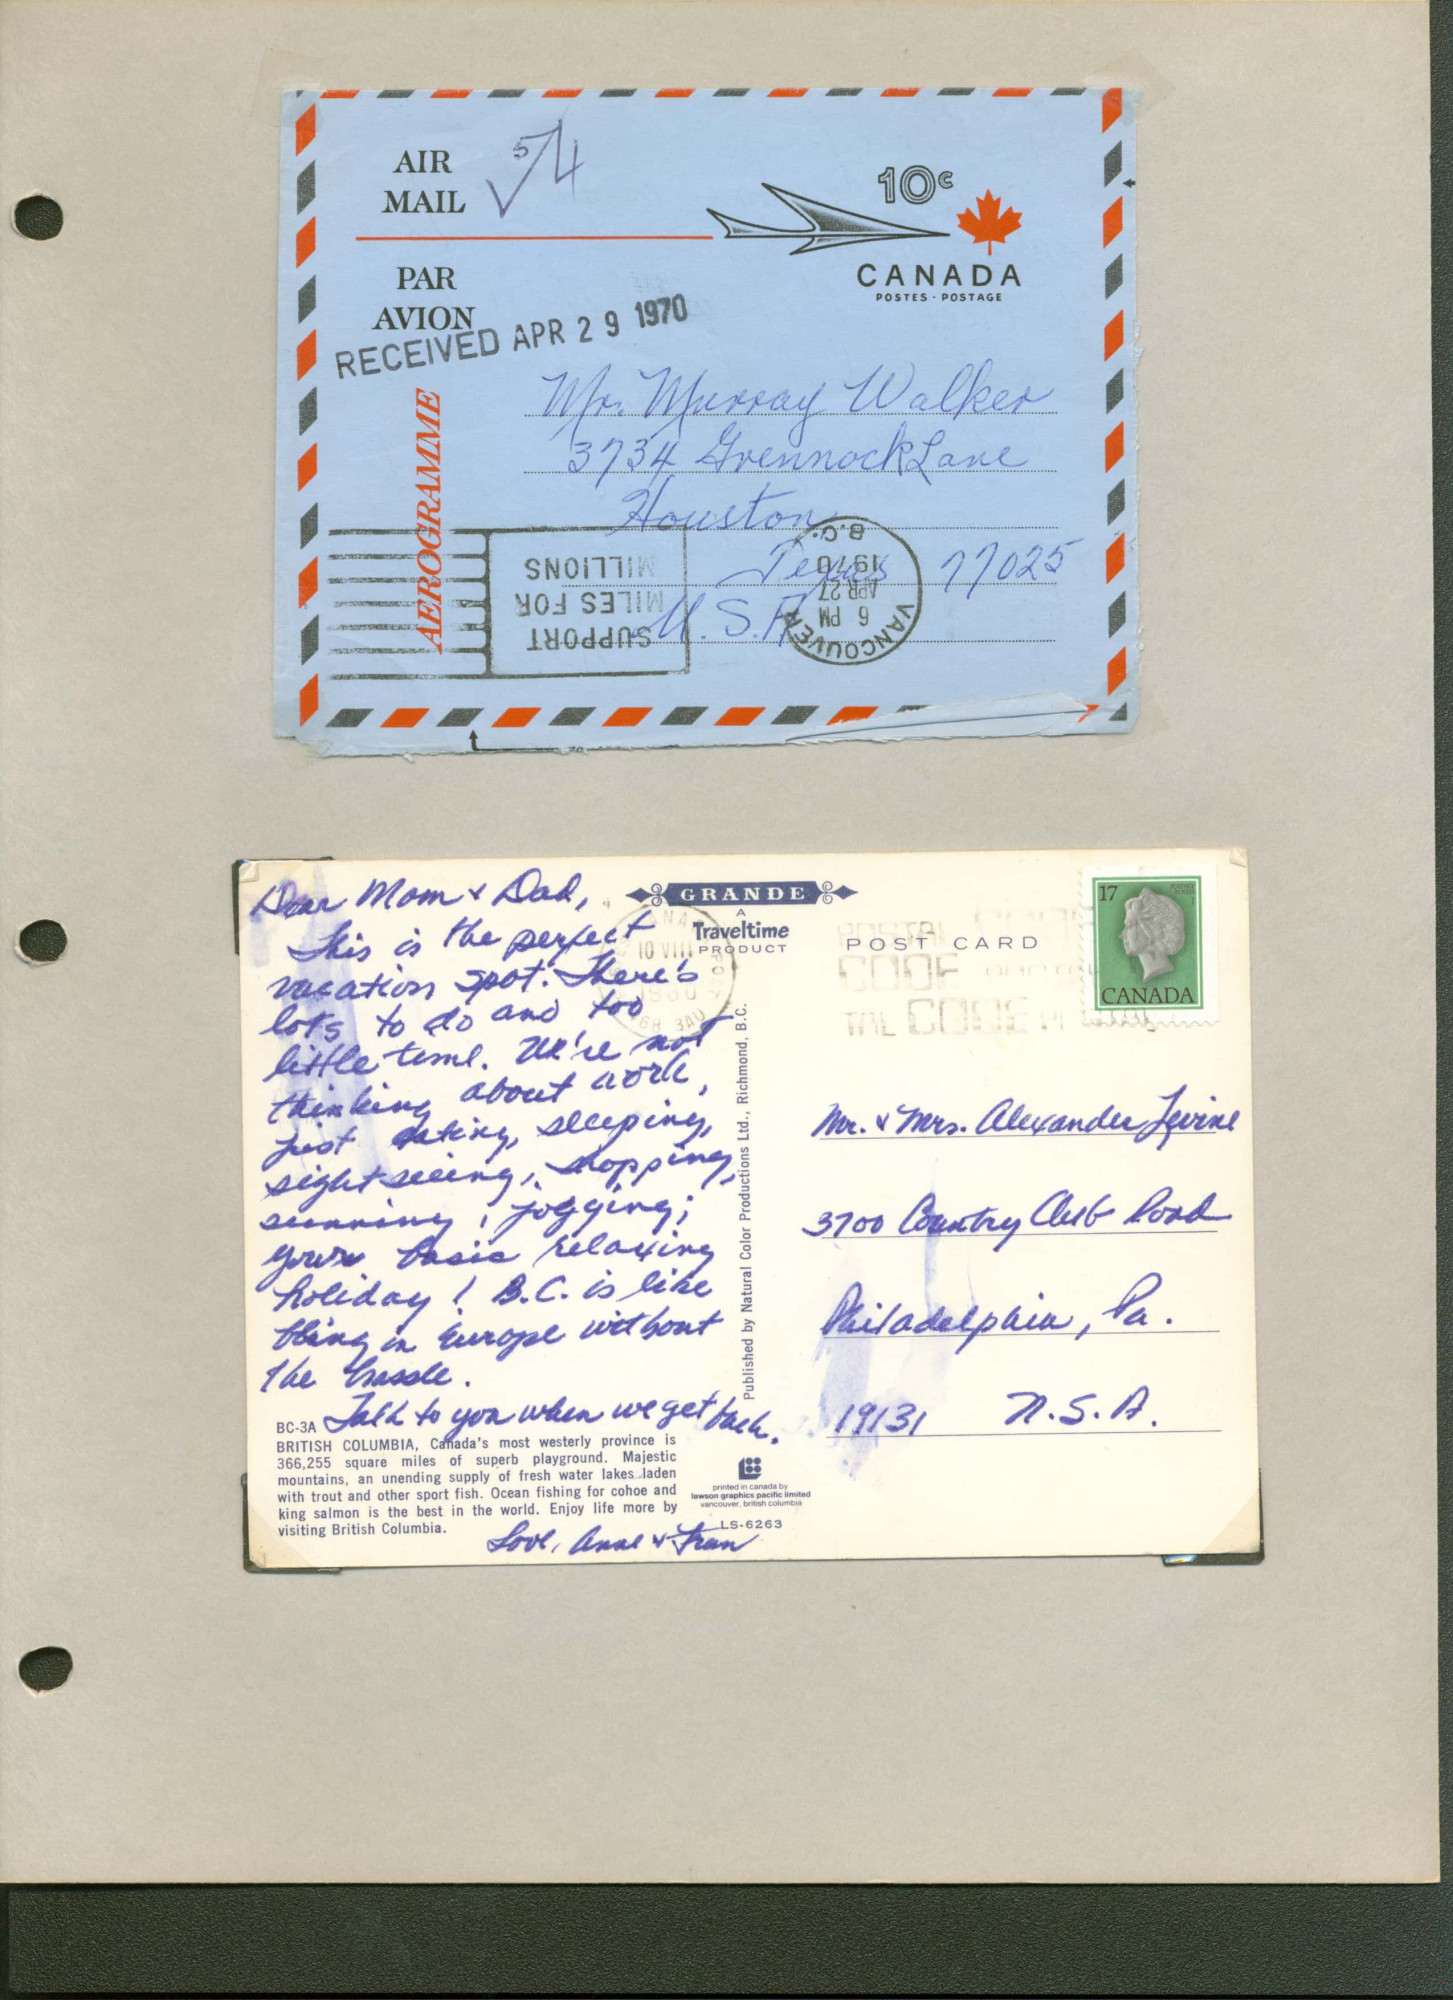 AIR
MAIL
5/4
10c
CANADA
POSTES · POSTAGE
PAR
AVION
RECEIVED APR 29 1970
AEROGRAMME
Mr. Murray Walker
3734 Grennock Lane
Houston
Texas 77025
U.S.A.
SUPPORT
MILES FOR
MILLIONS
VANCOUVER
6 PM
APR 27
1970
B.C.
Dear Mom & Dad,
This is the perfect
vacation spot. There's
lots to do and too
little time. We're not
thinking about work,
just eating, sleeping,
sightseeing, shopping,
sunning, jogging;
your basic relaxing
holiday! B.C. is like
being in Europe without
the hassle.
Talk to you when we get back.
Love, Anne & Fran
GRANDE
A
Traveltime
PRODUCT
10 VIII
1980
POST CARD
POSTAL
CODE
17
POSTAGE
POSTES
CANADA
Published by Natural Color Productions Ltd., Richmond, B.C.
Mr. & Mrs. Alexander Levine
3700 Country Club Road
Philadelphia, Pa.
19131 U.S.A.
BC-3A
BRITISH COLUMBIA, Canada's most westerly province is
366,255 square miles of superb playground. Majestic
mountains, an unending supply of fresh water lakes laden
with trout and other sport fish. Ocean fishing for cohoe and
king salmon is the best in the world. Enjoy life more by
visiting British Columbia.
printed in canada by
lawson graphics pacific limited
vancouver, british columbia
LS-6263